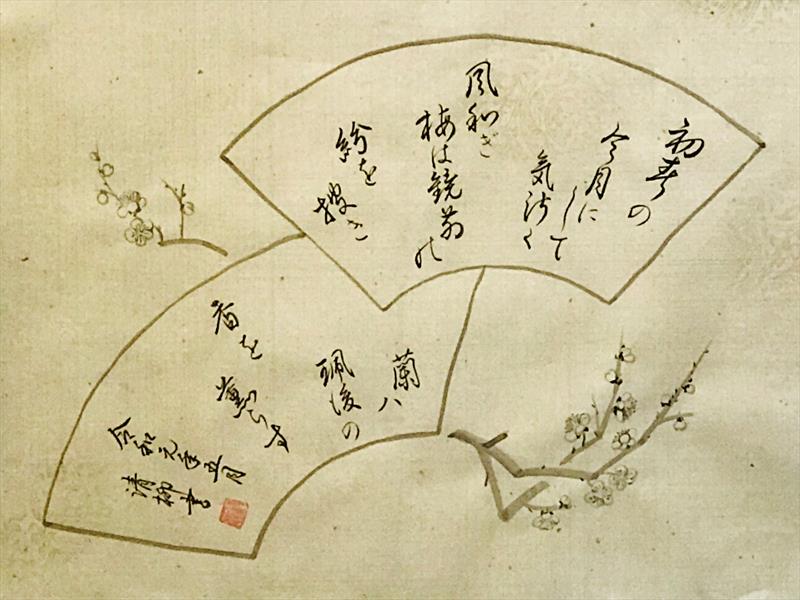 初春の
令月に
して
気淑く
風和ぎ
梅は鏡前の
粉を
披き
蘭ハ
珮後の
香を
薫らす
令和元年五月
清柳書